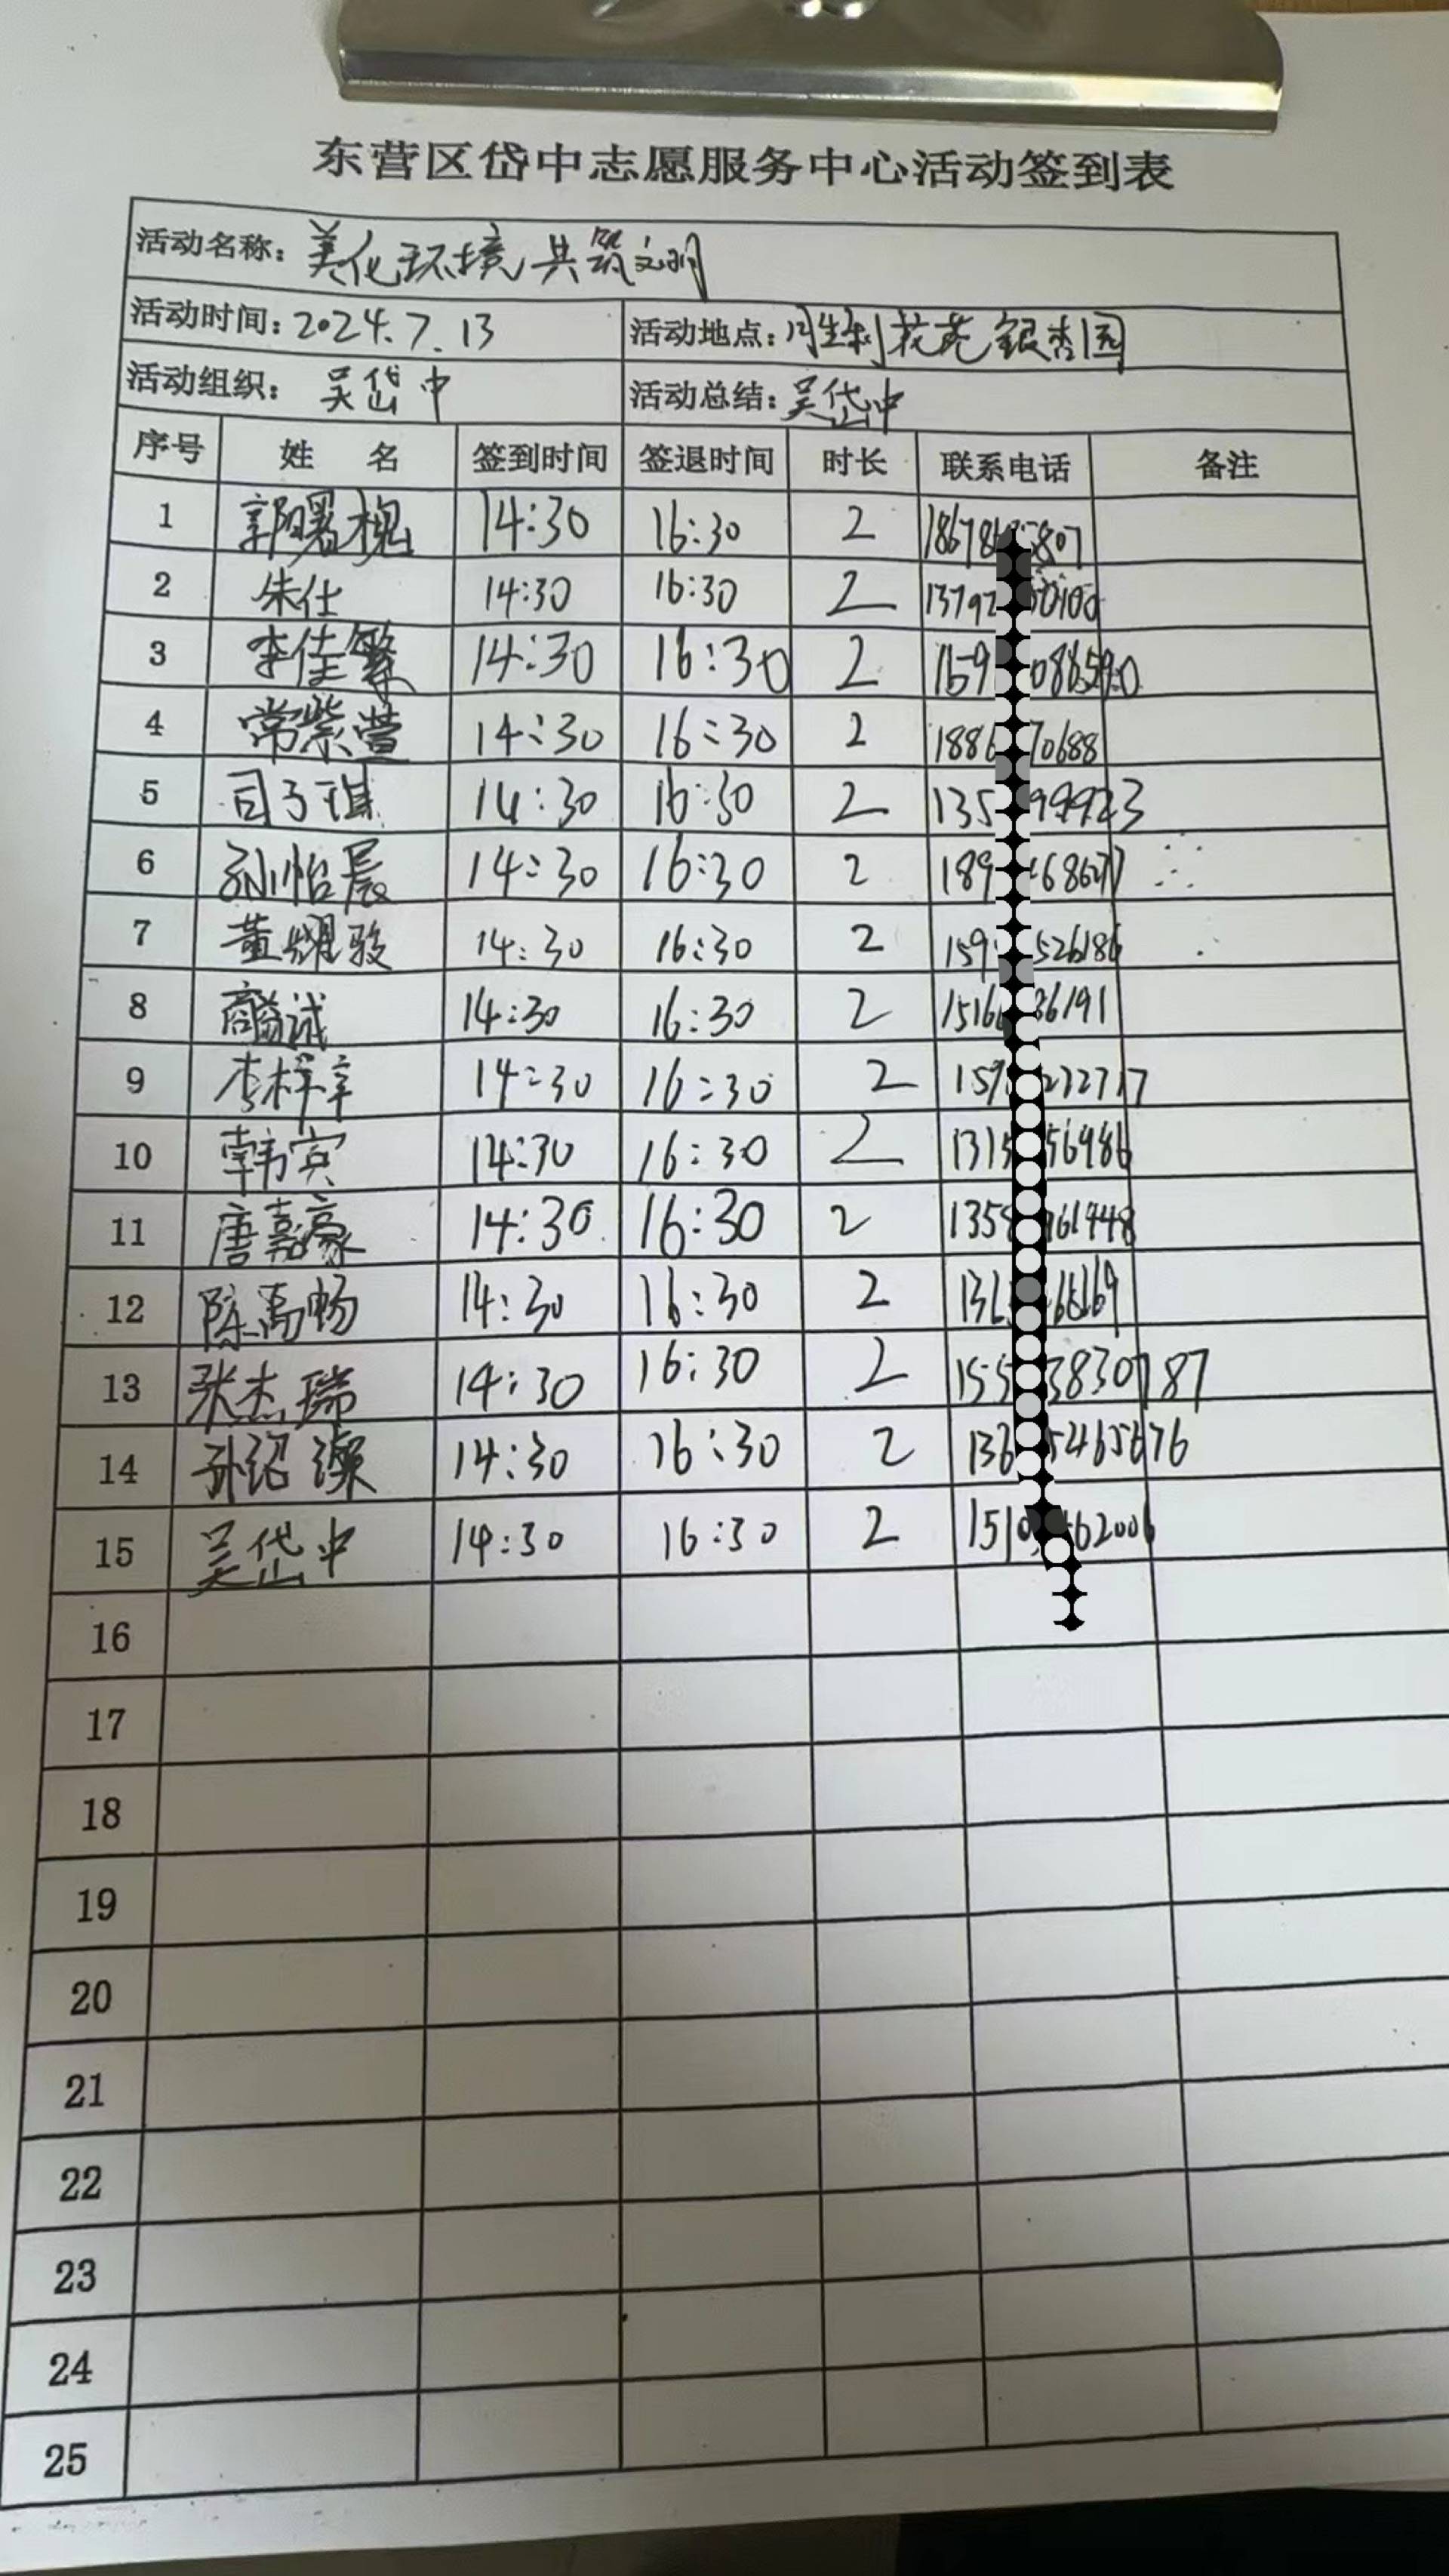 东营区岱中志愿服务中心活动签到表
活动名称：美化环境 共筑文明
活动时间：2024.7.13 活动地点：花苑银杏园
活动组织：吴岱中 活动总结：吴岱中
序号 姓 名 签到时间 签退时间 时长 联系电话 备注
1 郭曙槐 14:30 16:30 2 807
2 朱仕 14:30 16:30 2 13792
3 李佳繁 14:30 16:30 2 159
4 常紫萱 14:30 16:30 2 1886 70688
5 司子琪 14:30 16:30 2 135 99923
6 孙怡晨 14:30 16:30 2 189
7 董耀骏 14:30 16:30 2 159 526186
8 商懿诚 14:30 16:30 2 1516 36191
9 李梓辛 14:30 16:30 2 159
10 韩宾 14:30 16:30 2 1315 56986
11 唐嘉豪 14:30 16:30 2 1358 761448
12 陈禹畅 14:30 16:30 2 136
13 张杰瑞 14:30 16:30 2 155 3830787
14 孙绍 14:30 16:30 2 136 5465676
15 吴岱中 14:30 16:30 2 1510 62006
16
17
18
19
20
21
22
23
24
25